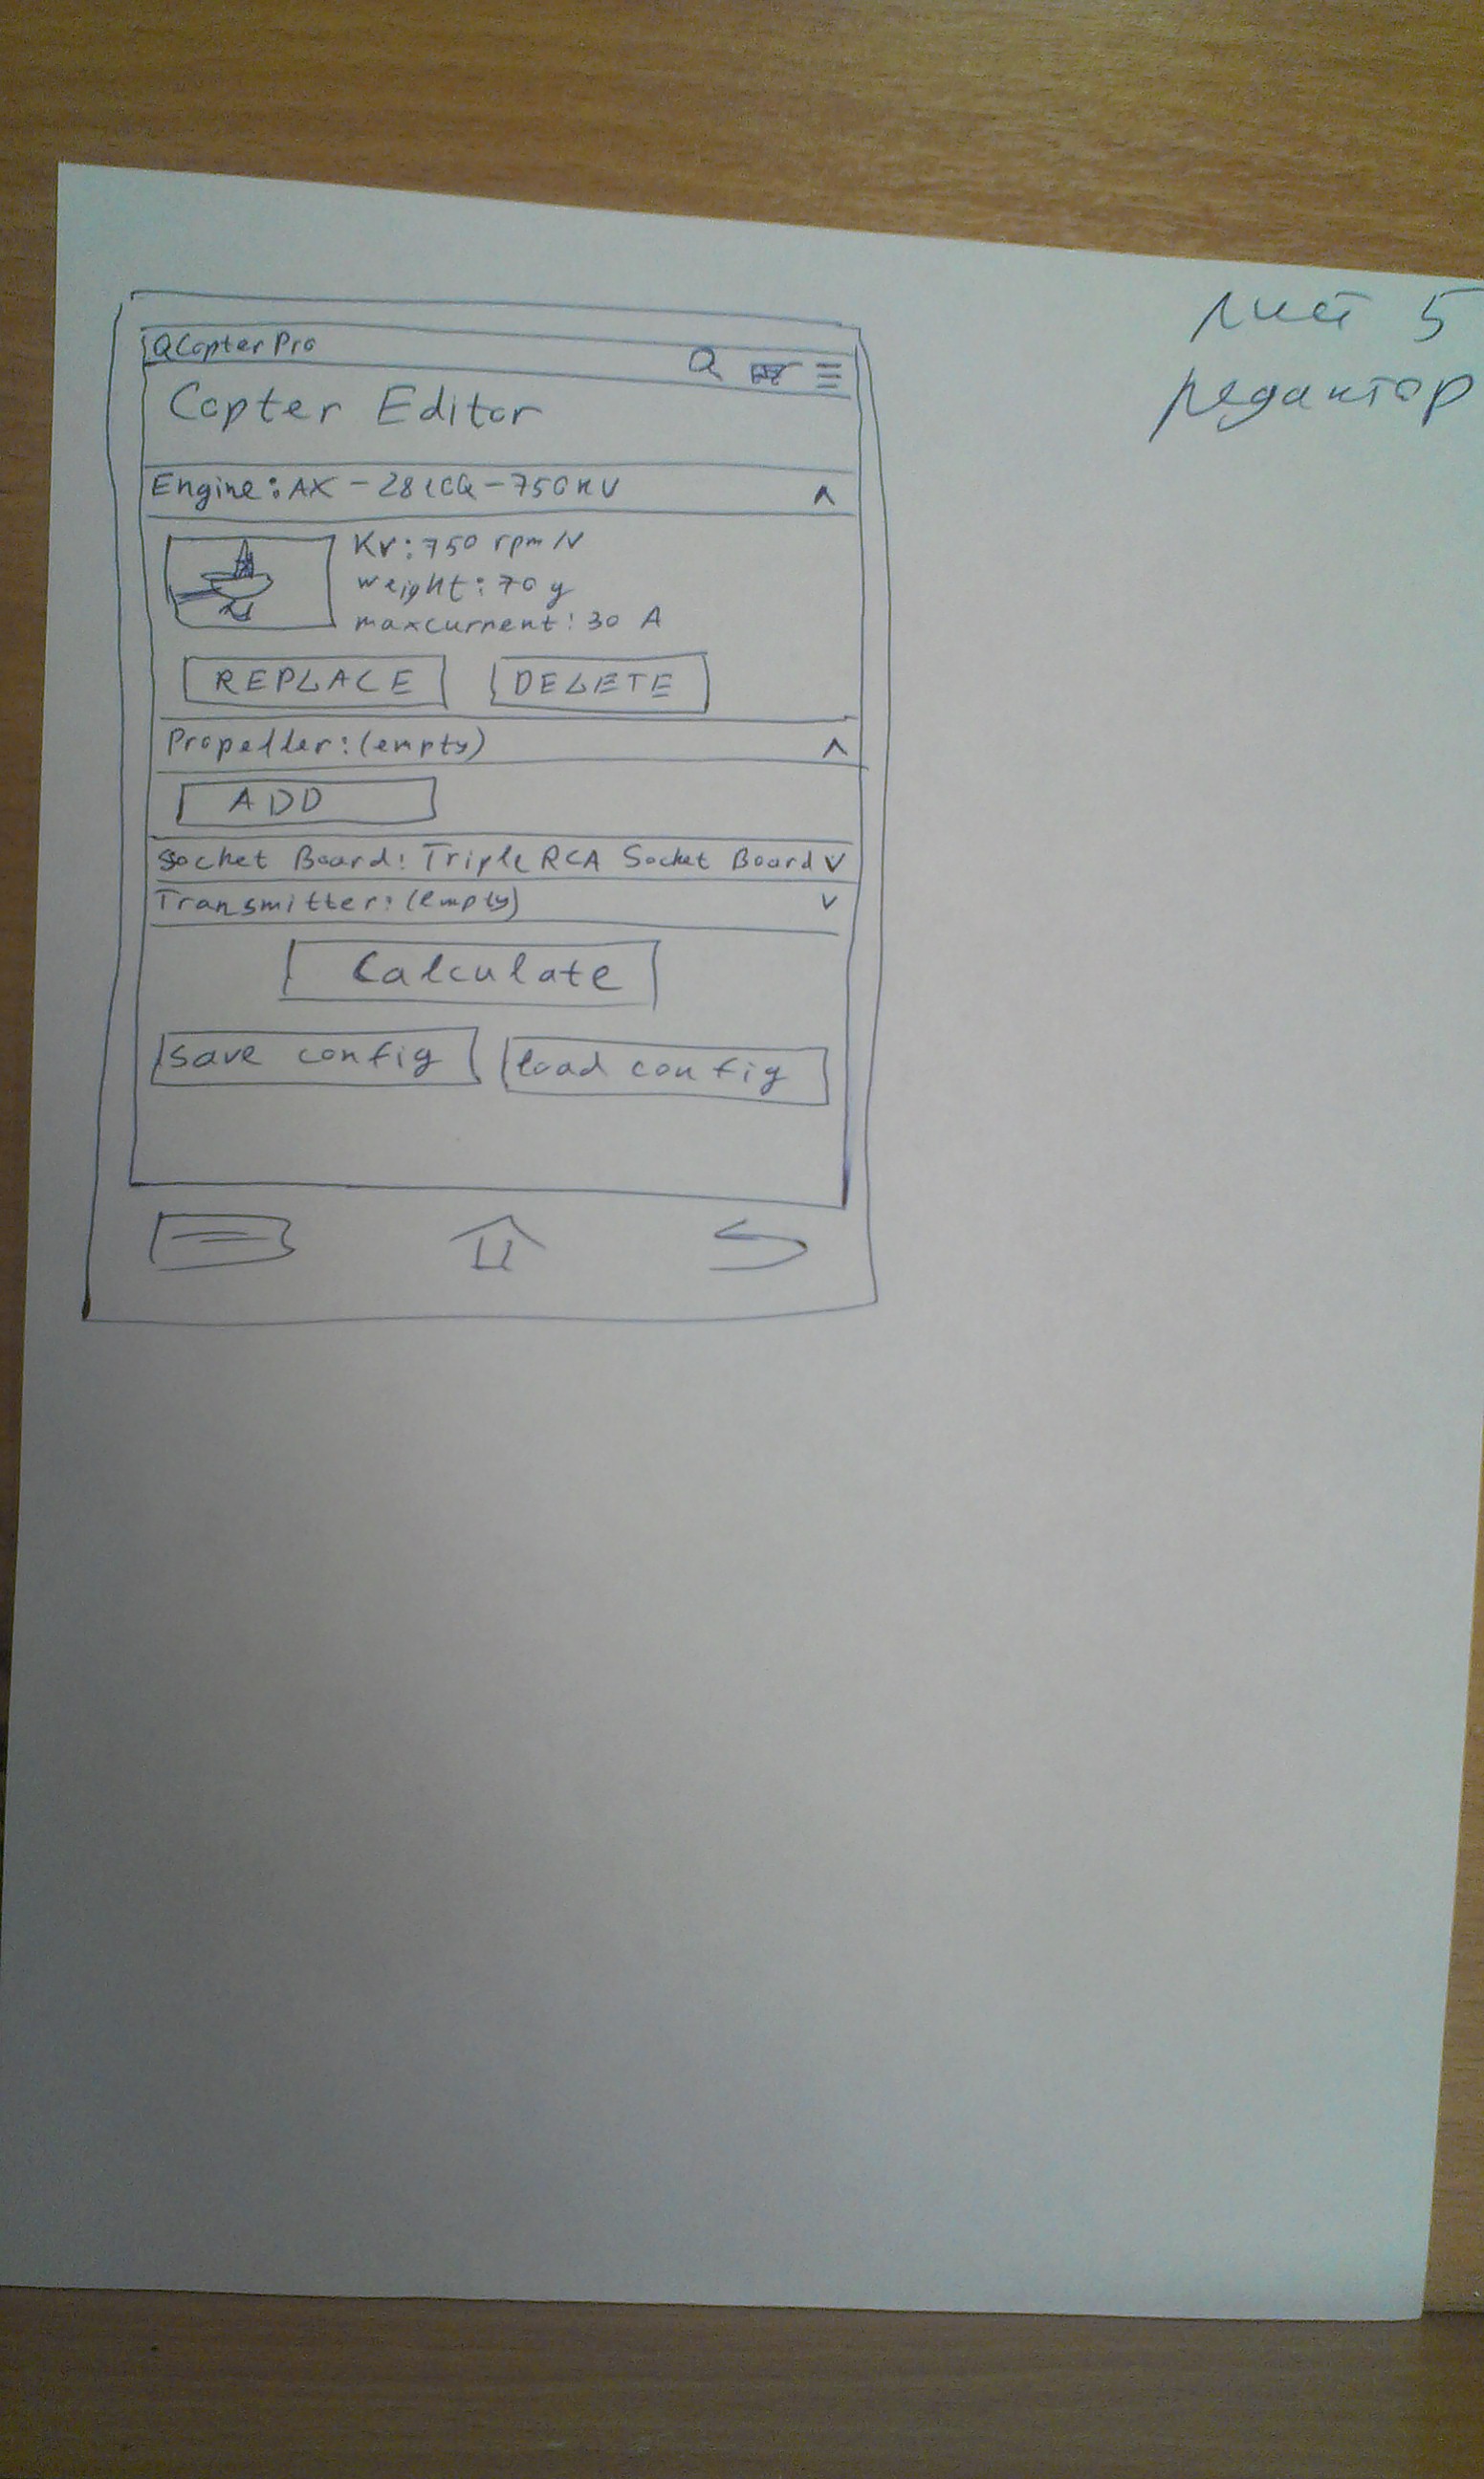 QCopterPro
Copter Editor
Engine: AX - 2810Q - 750KV
Kv: 750 rpm/V
weight: 70 g
maxcurrent: 30 A
REPLACE DELETE
Propeller: (empty)
ADD
Socket Board: Triple RCA Socket Board
Transmitter: (empty)
Calculate
save config load config
лист 5
редактор